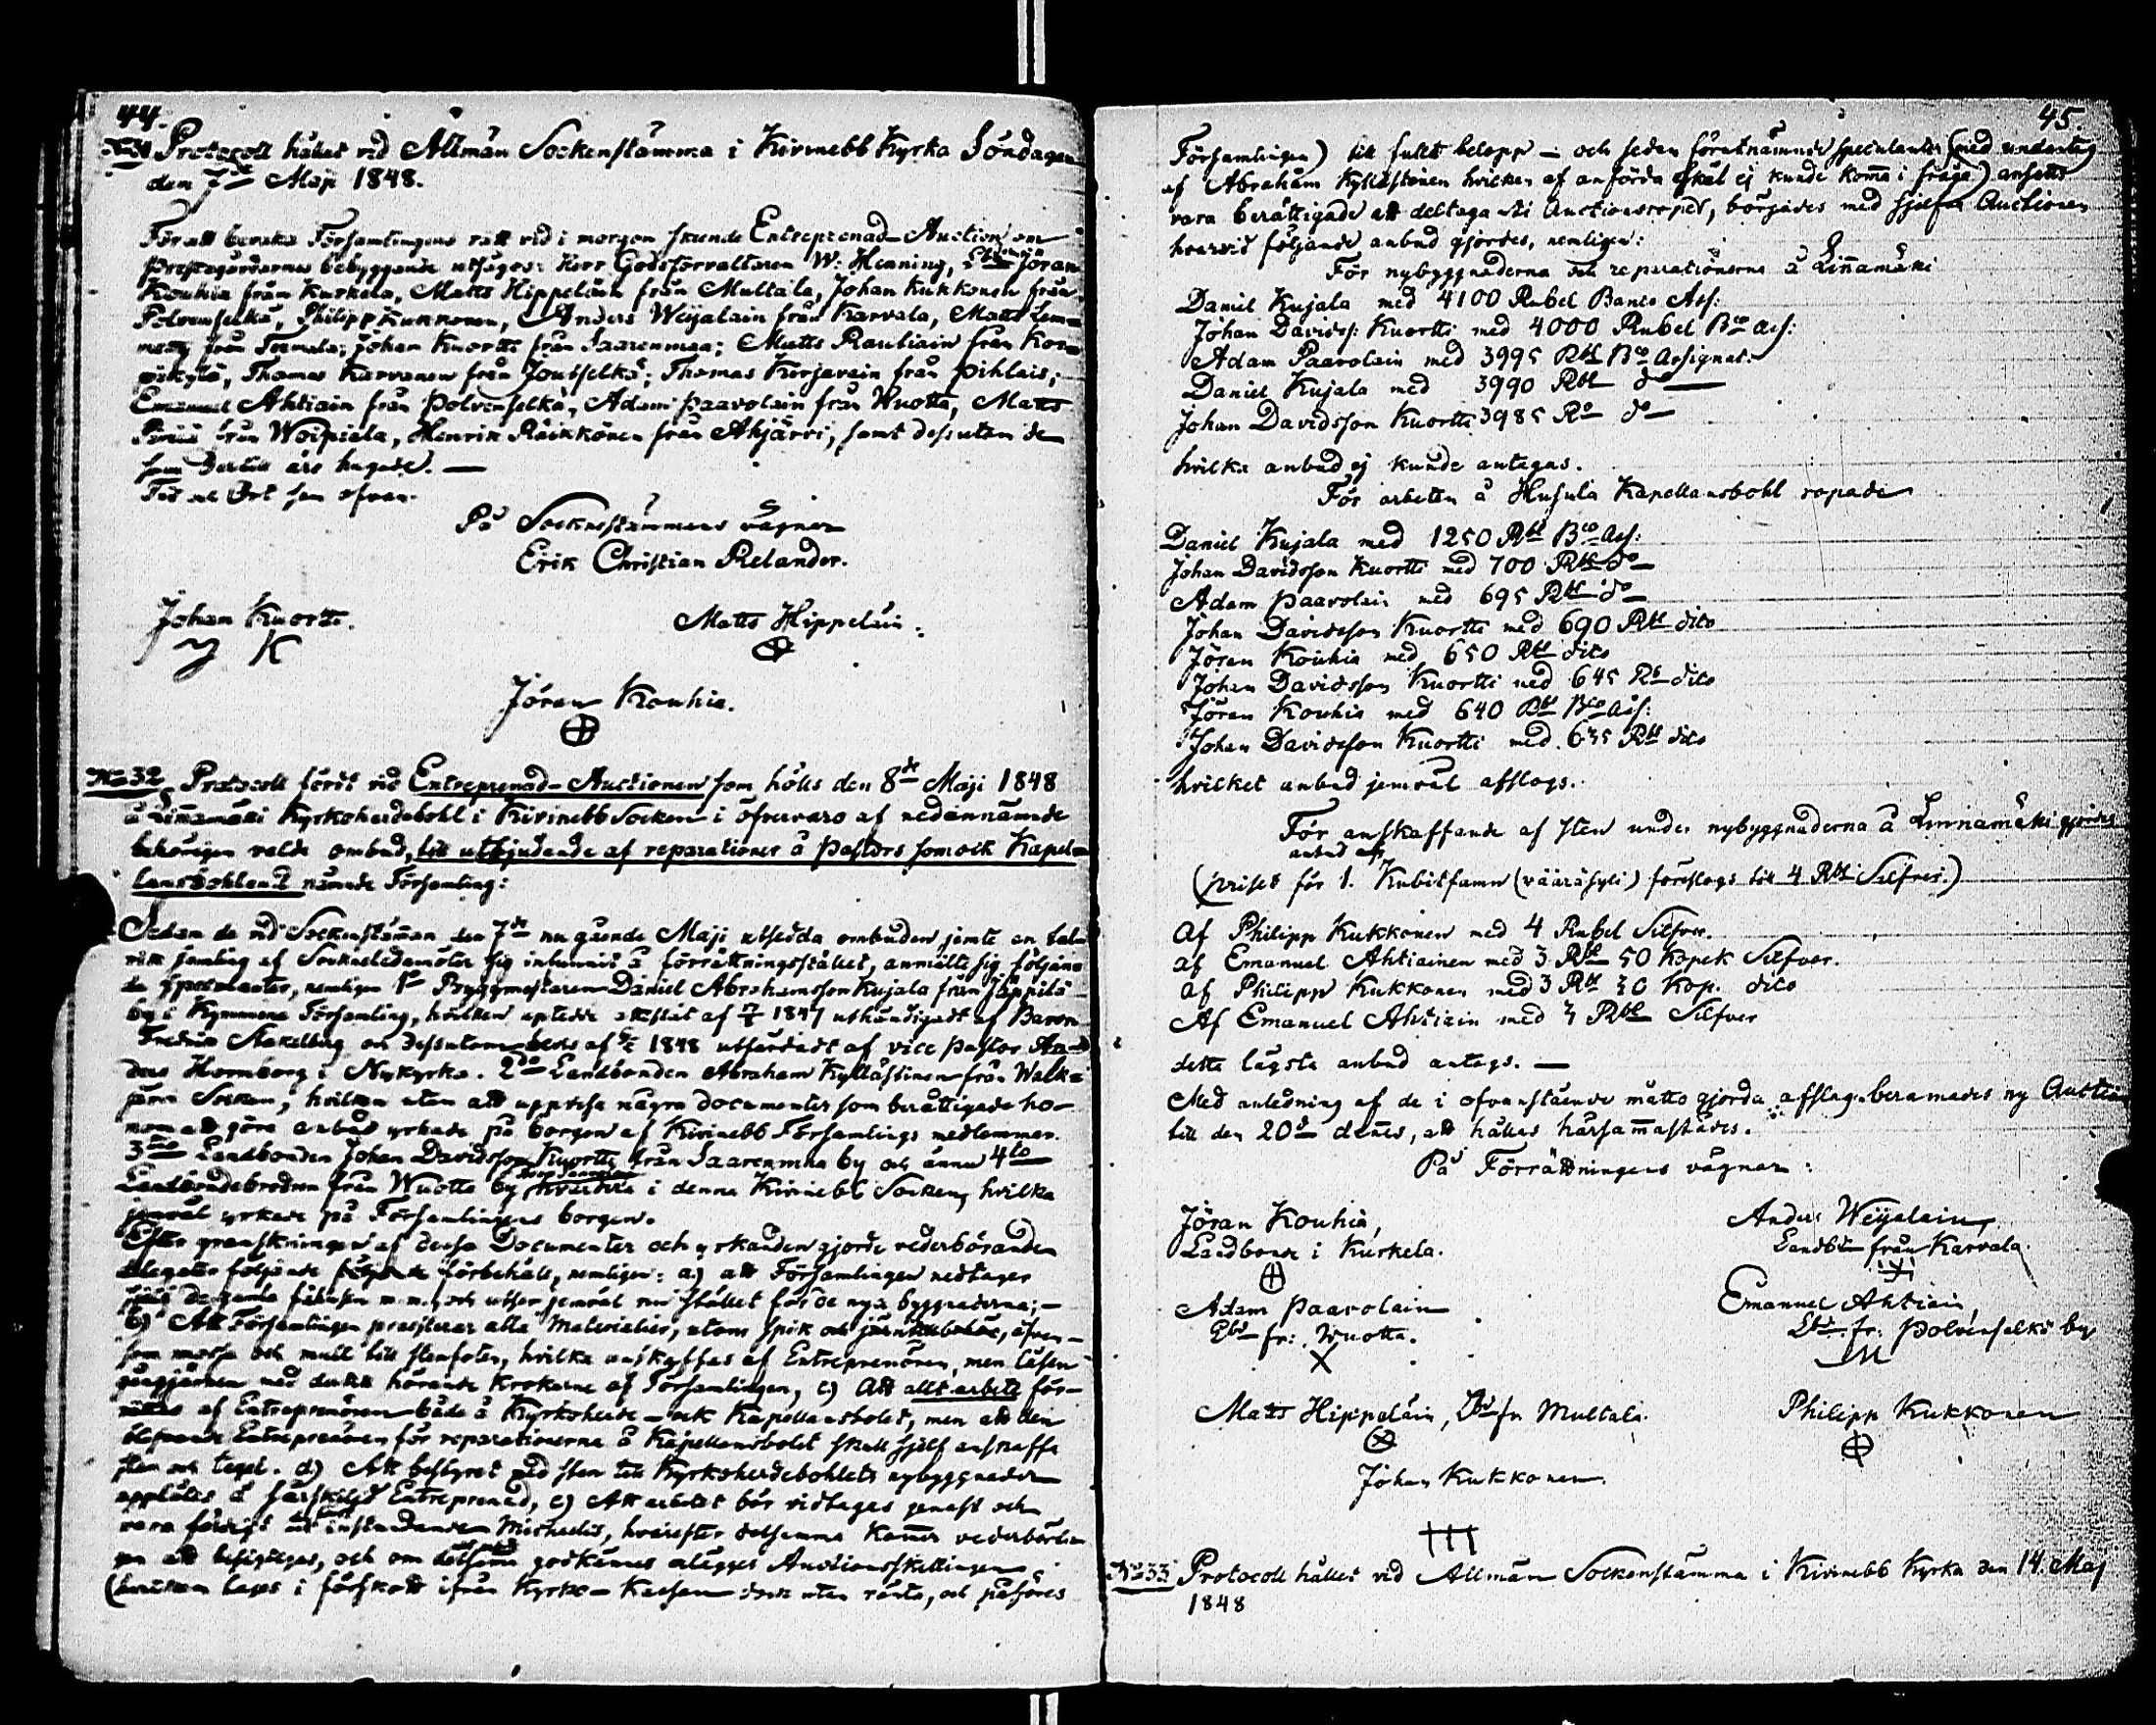 44.
No 31 Protocoll hållet vid Allmän Sockenstämma i Kivinebb Kyrka Söndagen
den 7de Maji 1848.
För att bevaka Församlingens rätt vid i morgon skeende Entreprenad-Auction om
Prestegårdarnes bebyggande utsågos: Herr Godsförvaltaren W: Henning, Jöran
Kouhia från Kuskela, Matts Hippeläin från Multala, Johan Kukkonen från
Polvenselkä, Philipp Kukkonen, Anders Weijalain från Karvala, Matts Lem-
från Termala; Johan Kuortti från Saarenmaa; Matts Rautiain från Kor-
pikylä, Thomas Karvanen från Joutselkä; Thomas Korjavain från Pihlais;
Emanuel Ahtiain från Polvenselkä, Adam Paavolain från Wuotta, Matts
från Woipiala, Henrik Räikkönen från Ahjärvi, samt dessutom de
som dertill äro hugade. —
Tid och Ort som ofvan.
På Socknestämmans vägnar
Erik Christian Relander.
Johan Kuortti. Matts Hippeläin.
J K
Jöran Kouhia.
No 32 Protocoll fördt vid Entreprenad-Auctionen som hölls den 8de Maji 1848
å Linnamäki Kyrkoherdebohl i Kivinebb Socken i öfvervaro af nedannämnde
behörigen valde ombud, till utbjudande af reparationer å Pastors som ock Kapel-
lansbohlen i nämnde Församling:
Sedan de vid Sockenstämman den 7de nu gående Maji utsedda ombuden jemte en tal-
rik samling af Sockneledamöter sig infunnit å förrättningsstället, anmälte sig följan-
de speculanter, nemligen 1o Byggmästaren Daniel Abrahamsson Kujala från Jäppilä
by i Kymmene Församling, hvilken uptedde attestat af 1847 uthändigadt af Baron
Fredric Stakelberg och dessutom af 1848 utfärdadt af vice Pastor An-
ders Hornborg i Nykyrka. 2do Landbonden Abraham Kyllästinen från Walk-
järvi Socken, hvilken utan att uppvisa några documenter som berättigade ho-
nom att göra anbud yrkade på borgen af Kivinebb Församlings medlemmar.
3tio Landbonden Johan Davidsson Kuortti från Saarenmaa by och ännu 4to
Landbondebrodren från Wuotta by i denna Kivinebb Socken, hvilka
jemväl yrkade på Församlingens borgen.
Efter granskningen af dessa Documenter och yrkanden gjorde vederbörande
delegater följande förbehåll, nemligen: a) att Församlingen nedtager
de gamla m.m. och utser jemväl nu stället för de nya byggnaderna; —
b) Att Församlingen præsterar alla Materialier, utom spik och, äfven-
som mossa och mull till stenfoten, hvilka anskaffas af Entreprenören, men låsen
gångjernen med dertill hörande krokarne af Församlingen, c) Att allt arbete för-
rättas af Entreprenören både å Kyrkoherde- och Kapellansbolet, men att den
blifvande Entreprenören för reparationerna å Kapellansbolet skall sjelf anskaffa
sten och tegel. d) Att bestyret med sten till Kyrkoherdebohlets nybyggnader
upplåtes å särskildt Entreprenad, e) Att arbetet bör vidtagas genast och
vara färdigt till instundande Michaelis, hvarefter detsamma kommer vederbörli-
gen att besigtigas, och om detsamma godkännes erlägges Auctionsskillingen
(hvilken tages i förskott ifrån Kyrko-Kassan dock utan ränta, och påföres
45
Församlingen) till fullt belopp — och sedan förutnämnde speculanter (med undantag
af Abraham Kyllästinen hvilken af anförda skäl ej kunde komma i fråga) ansetts
vara berättigade att deltaga uti Auctionsropet, börjades med sjelfva Auctionen
hvarvid följande anbud gjordes, nemligen:
För nybyggnaderna och reparationerna å Linnamäki
Daniel Kujala med 4100 Rubel Banco Ass:
Johan Davidss: Kuortti med 4000 Rubel Bco ass:
Adam Paavolain med 3995 Rbl Bco assignat:
Daniel Kujala med 3990 Rbl do
Johan Davidsson Kuortti 3985 Ro do
hvilka anbud ej kunde antagas.
För arbeten å Husula Kapellansbohl ropade
Daniel Kujala med 1250 Rbl Bco Ass:
Johan Davidsson Kuortti med 700 Rbl do
Adam Paavolain med 695 Rbl do
Johan Davidsson Kuortti med 690 Rbl dito
Jöran Kouhia med 650 Rbl dito
Johan Davidsson Kuortti med 645 Rb dito
Jöran Kouhia med 640 Rbl Bco ass:
Johan Davidsson Kuortti med 635 Rbl dito
hvilket anbud jemväl afslogs.
För anskaffande af sten under nybyggnaderna å Linnamäki gjordes
anbud af
(priset för 1. Kubikfamn (vääräsyli) föreslogs till 4 Rbl Silfver.)
Af Philipp Kukkonen med 4 Rubel Silfver.
af Emanuel Ahtiainen med 3 Rbl 50 Kopek Silfver.
af Philipp Kukkonen med 3 Rbl 30 Kop. dito
Af Emanuel Ahtiain med 3 Rbl Silfver
detta lägsta anbud antogs. —
Med anledning af de i ofvanstående måtto gjorda afslag beramades ny Auction
till den 20de dennes, att hållas härsammastädes.
På Förrättningens vägnar:
Jöran Kouhia, Anders Weijalain,
Landbonde i Kuskela. Landb: från Karvala.
Adam Paavolain Emanuel Ahtiain,
Lbd fr: Wuotta. Lbd. fr: Polvenselkä by
X
Matts Hippeläin, Bd fr Multala. Philipp Kukkonen
Johan Kukkonen.
No 33 Protocoll hållet vid Allmän Sockenstämma i Kivinebb Kyrka den 14. Maj
1848